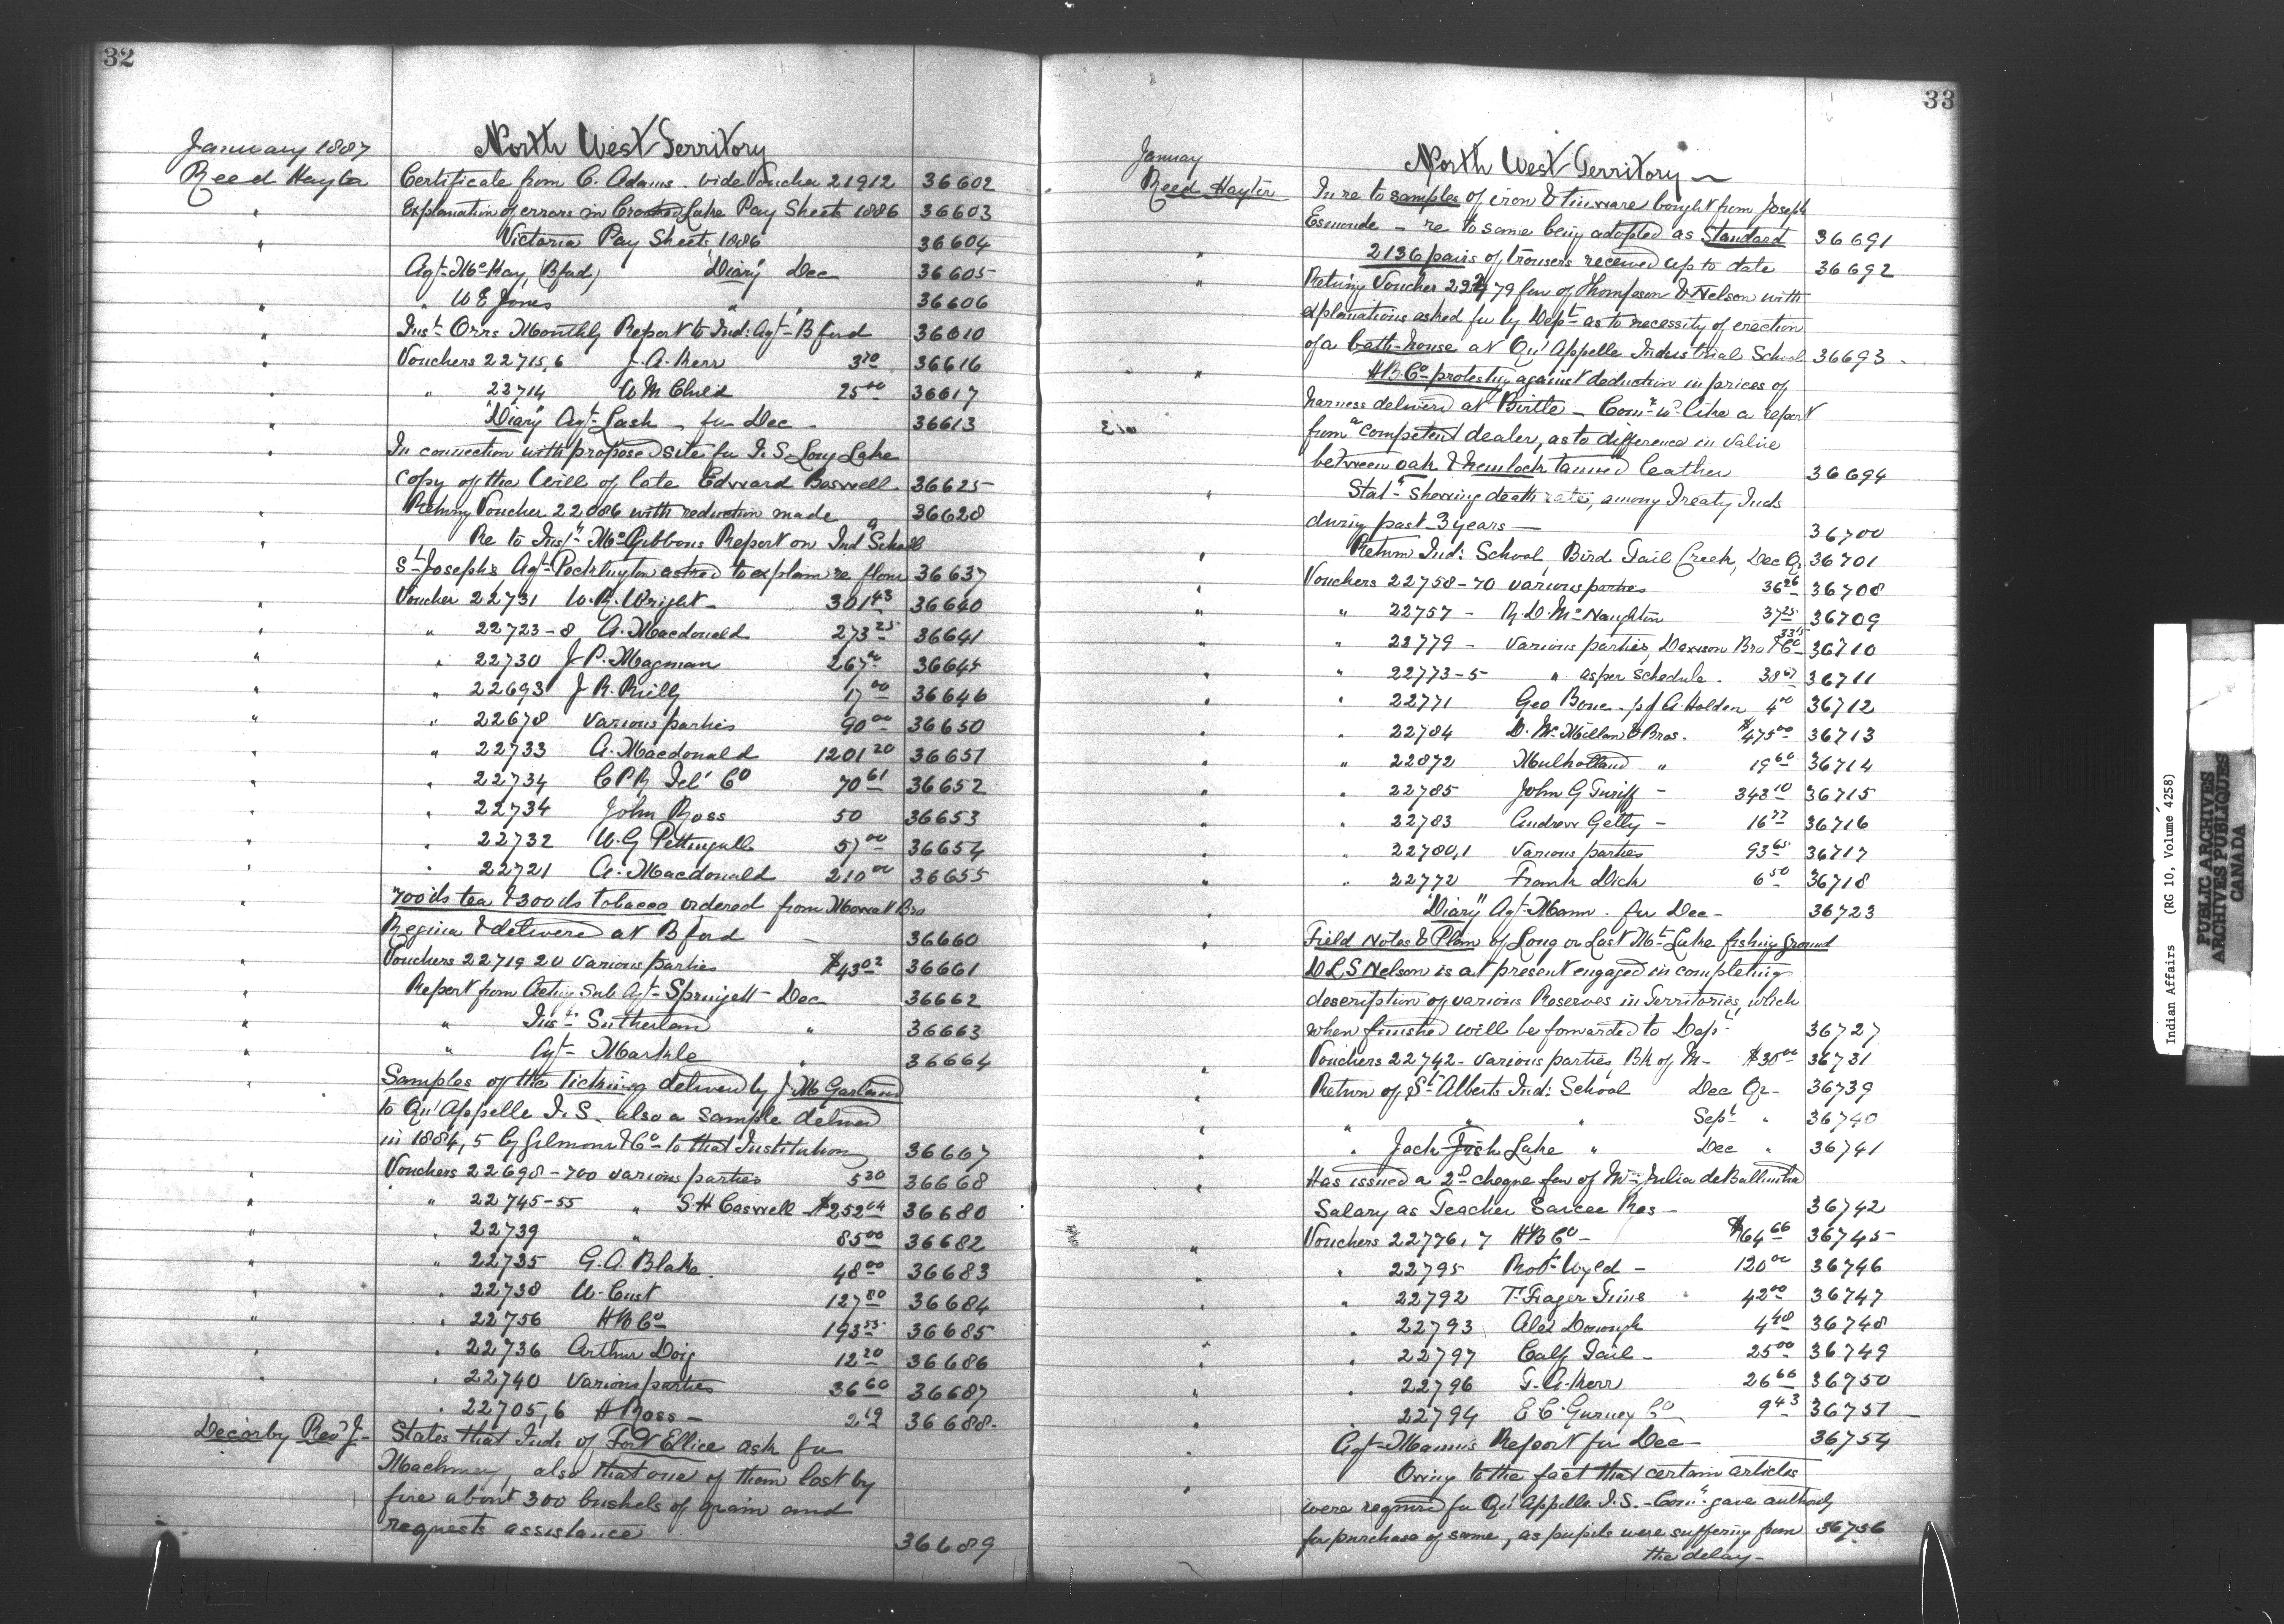 32
North West Territory
January 1887
Reed Hayter Certificate from C. Adams. vide Voucher 21912 36602
" Explanation of errors in Crooked Lake Pay Sheets 1886 36603
" Victoria Pay Sheets 1886 36604
Agt McKay (Bford) "Diary" Dec 36605
" " W E Jones " " 36606
" Inst Orrs Monthly Report to Ind: Agt B ford 36610
" Vouchers 22715,6 J. A. Kerr 3 70 36616
" " 22714 W M Child 25 00 36617
" "Diary" Agt Lash - for Dec - 36613
" In connection with proposed site for I. S. Long Lake
copy of the Will of late Edward Boswell. 36625
" Retung Voucher 22086 with reduction made 36628
" Re to Inspr McGibbons Report on Indl School
St Josephs Agt Pocklington asked to explain re flour 36637
" Voucher 22731 W. R. Wright - 301 43 36640
" " 22723-8 A. Macdonald 273 25 36641
" " 22730 J P. Magman 267 36645
" " 22693 J R. Reilly 17 00 36646
" " 22678 Various parties 90 00 36650
" " 22733 A. Macdonald 1201 20 36651
" " 22734 C P R Tel' Co 70 61 36652
" " 22734 John Ross 50 36653
" " 22732 W. G Pettingell 57 00 36654
" " 22721 A. Macdonald 210 00 36655
" 700 lbs tea & 300 lbs tobacco ordered from Mowat Bro
Regina & delivered at B ford - 36660
" Vouchers 22719 20 Various parties $43 02 36661
" Report from Acting Sub Agt Springett Dec 36662
" " Inst Sutherland " 36663
" " Agt Markle " 36664
" Samples of the ticking delivered by J. M Garland
to Qu'Appelle I. S. also a sample delived
in 1884, 5 by Gilmour & Co to that Institution 36667
" Vouchers 22698-700 various parties 5 30 36668
" " 22745-55 " S. H Caswell $252 04 36680
" " 22739 " 85 00 36682
" " 22735 G. O. Blake. 48 00 36683
" " 22738 W. Cust 127 80 36684
" " 22756 H B Co 193 55 36685
" " 22736 Arthur Doig 12 20 36686
" " 22740 Various parties 36 60 36687
" 22705,6 H Ross - 2 19 36688
Decorby Revd J. States that Inds of Fort Ellice ask for
Machinery, also that one of them lost by
fire about 300 bushels of grain and
requests assistance 36689
33
North West Territory
January
Reed Hayter In re to samples of iron & tinware bought from Joseph
Esmonde - re to same being adopted as Standard 36691
" 2136 pairs of trousers received up to date 36692
" Retung Voucher 22479 fav of Thompson & Nelson with
explanations asked for by Dept as to necessity of erection
of a bath-house at Qu'Appelle Industrial School 36693
" H B. Co protesting against deduction in prices of
harness delivered at Birtle - Comr wd like a report
from a competent dealer, as to difference in value
between oak & hemlock tanned leather 36694
" Statt showing death rate, among Treaty Inds
during past 3 years - 36700
" Return Ind: School, Bird Tail Creek, Dec Qr 36701
" Vouchers 22758-70 various parties 36 26 36708
" " 22757 - R. D. McNaughton 37 25 36709
" " 22779 - Various parties, Dawson Bro & Co 33 15 36710
" " 22773-5 " as per Schedule. 38 67 36711
" " 22771 Geo Bone - pd A. Holden 4 00 36712
" " 22784 D. McMillan & Bros. $475 00 36713
" " 22872 Mulholland " 19 60 36714
" " 22785 John G Turiff - 343 10 36715
" " 22783 Andrew Getty - 16 77 36716
" " 22780,1 Various parties 93 65 36717
" " 22772 Frank Dick 6 50 36718
" "Diary" Agt Mann. for Dec - 36723
" Field Notes & Plan of Long or Last Mt Lake fishing ground
D L S Nelson is at present engaged in completing
description of various Reserves in Territories, which
when finished will be forwarded to Dept 36727
" Vouchers 22742 - various parties, Bk of M - $30 00 36731
" Return of St Alberts Ind: School Dec Qr - 36739
" " " Sept " 36740
" " Jack Fish Lake " Dec " 36741
" Has issued a 2d cheque fav of Julia de
Salary as Teacher Sarcee Res - 36742
" Vouchers 22776,7 H B Co - $64 66 36745
" " 22795 Robt Wyld - 120 00 36746
" " 22792 T. Frager Tims 42 00 36747
" " 22793 Alex Donough 4 48 36748
" " 22797 Calf Tail - 25 00 36749
" " 22796 J. A. Kerr 26 66 36750
" " 22794 E. C. Gurney Co 9 43 36751
" Agt Manns Report for Dec - 36754
" Owing to the fact that certain articles
were required for Qu'Appelle I. S. - Comr gave authority
for purchase of same, as pupils were suffering from 36756
the delay -
Indian Affairs (RG 10, Volume 4258)
PUBLIC ARCHIVES
ARCHIVES PUBLIQUES
CANADA